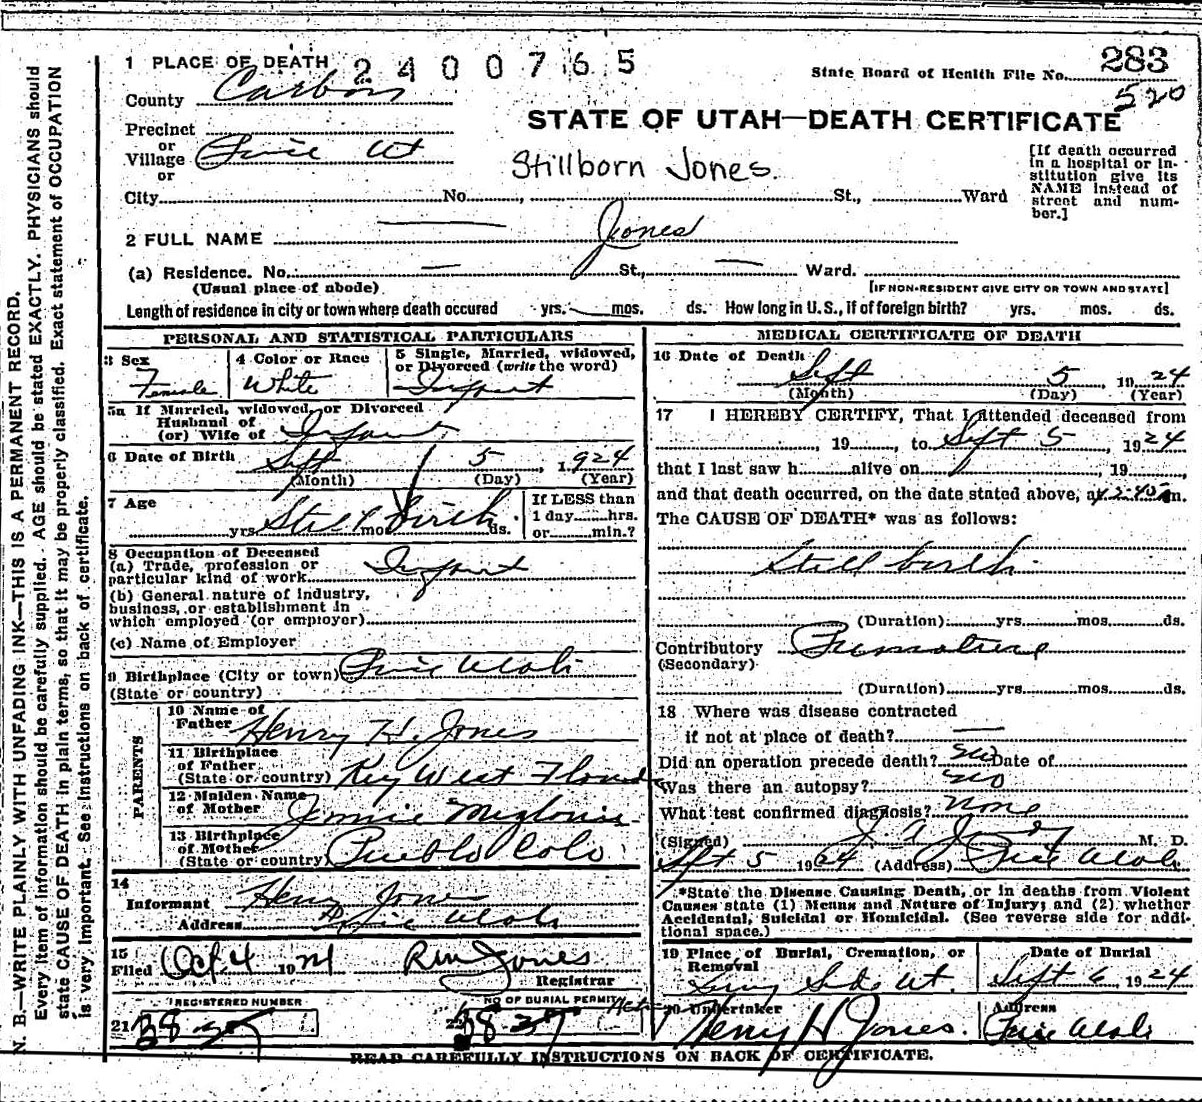 1 PLACE OF DEATH 2400765
State Board of Health File No. 283
520
County Carbon
STATE OF UTAH—DEATH CERTIFICATE
Precinct
or
Village Price Ut
or
Stillborn Jones.
[If death occurred in a hospital or institution give its NAME instead of street and number.]
City No. , St., Ward
2 FULL NAME — Jones
(a) Residence. No. — St., — Ward.
(Usual place of abode) [IF NON-RESIDENT GIVE CITY OR TOWN AND STATE]
Length of residence in city or town where death occured yrs. mos. ds. How long in U. S., if of foreign birth? yrs. mos. ds.
PERSONAL AND STATISTICAL PARTICULARS
3 Sex Female
4 Color or Race White
5 Single, Married, widowed, or Divorced (write the word) Infant
5a If Married, widowed, or Divorced
Husband of
(or) Wife of Infant
6 Date of Birth Sept 5, 1924
(Month) (Day) (Year)
7 Age Still birth
yrs. mos. ds.
If LESS than
1 day hrs.
or min.?
8 Occupation of Deceased
(a) Trade, profession or
particular kind of work Infant
(b) General nature of industry,
business, or establishment in
which employed (or employer)
(c) Name of Employer
9 Birthplace (City or town) Price Utah
(State or country)
PARENTS
10 Name of
Father Henry H. Jones
11 Birthplace
of Father
(State or country) Key West Florida
12 Maiden Name
of Mother
13 Birthplace
of Mother
(State or country) Pueblo Colo
14
Informant Henry Jones
Address Price Utah
15
Filed Oct 4 1924
Jones
Registrar
REGISTERED NUMBER
21
NO OF BURIAL PERMIT
MEDICAL CERTIFICATE OF DEATH
16 Date of Death Sept 5, 1924
(Month) (Day) (Year)
17 I HEREBY CERTIFY, That I attended deceased from
, 19 , to Sept 5 1924
that I last saw h alive on , 19
and that death occurred, on the date stated above, at 2:45 m.
The CAUSE OF DEATH* was as follows:
Still birth
(Duration) yrs. mos. ds.
Contributory Premature
(Secondary)
(Duration) yrs. mos. ds.
18 Where was disease contracted
if not at place of death? —
Did an operation precede death? no Date of
Was there an autopsy? no
What test confirmed diagnosis? none
(Signed) M. D.
Sept 5 1924 (Address) Price Utah
*State the Disease Causing Death, or in deaths from Violent
Causes state (1) Means and Nature of Injury; and (2) whether
Accidental, Suicidal or Homicidal. (See reverse side for additional space.)
19 Place of Burial, Cremation, or
Removal
Date of Burial
Sept 6 1924
20 Undertaker
Henry H Jones.
Address
Price Utah
READ CAREFULLY INSTRUCTIONS ON BACK OF CERTIFICATE.
N. B.—WRITE PLAINLY WITH UNFADING INK—THIS IS A PERMANENT RECORD.
Every item of information should be carefully supplied. AGE should be stated EXACTLY. PHYSICIANS should
state CAUSE OF DEATH in plain terms, so that it may be properly classified. Exact statement of OCCUPATION
is very important. See instructions on back of certificate.